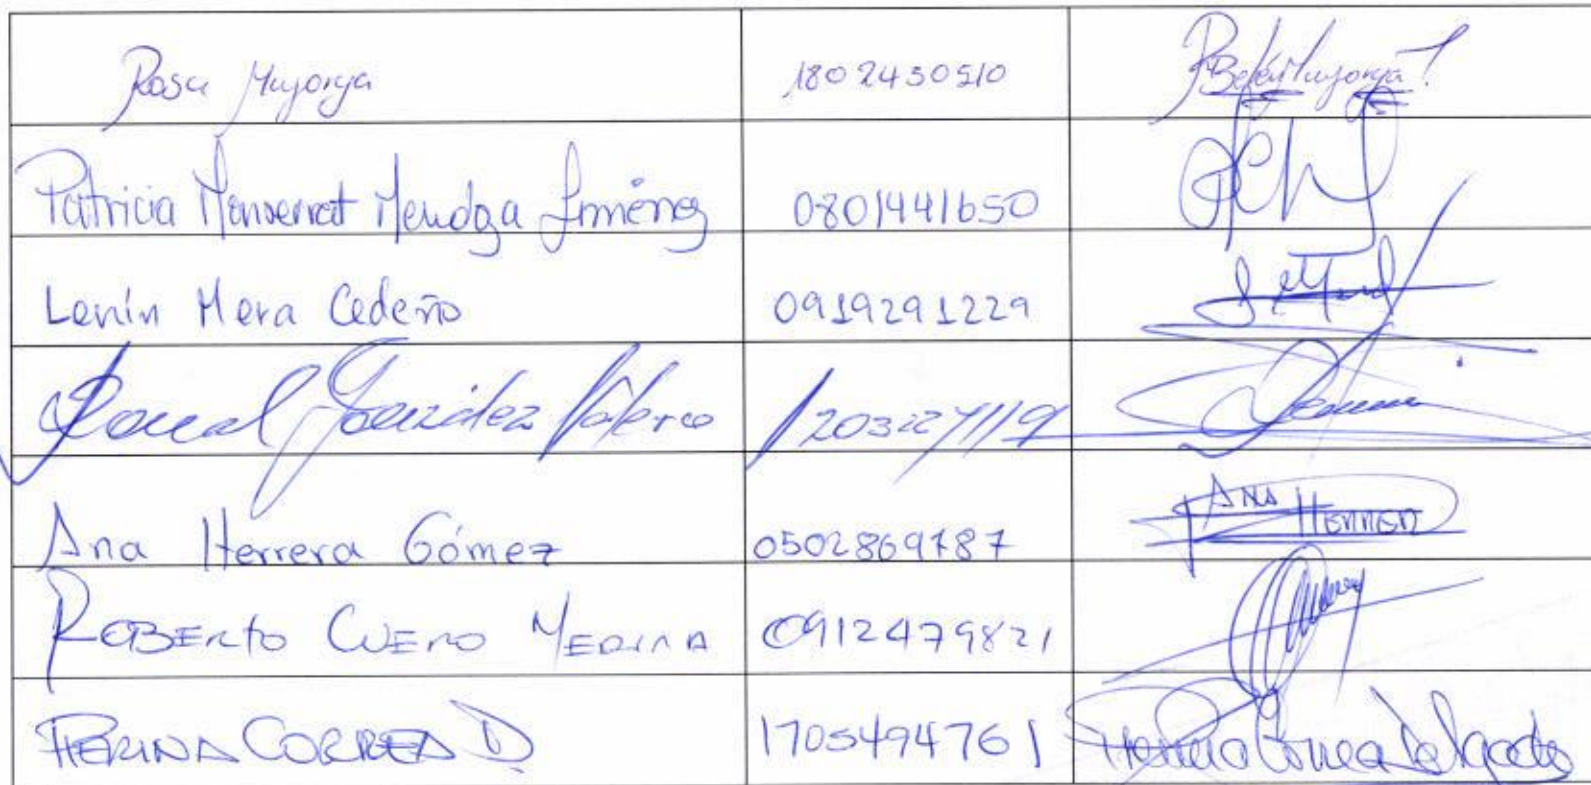 Rosa Mayorga 1802430510 Belén Mayorga
Patricia Monserrat Mendoza Jiménez 0801441650
Lenín Mera Cedeño 0919291229
González 
Ana Herrera Gómez 0502869787 ANA HERRERA
ROBERTO CUERO MEDINA 0912479821
CORREA D 1705494761 Correa Delgado